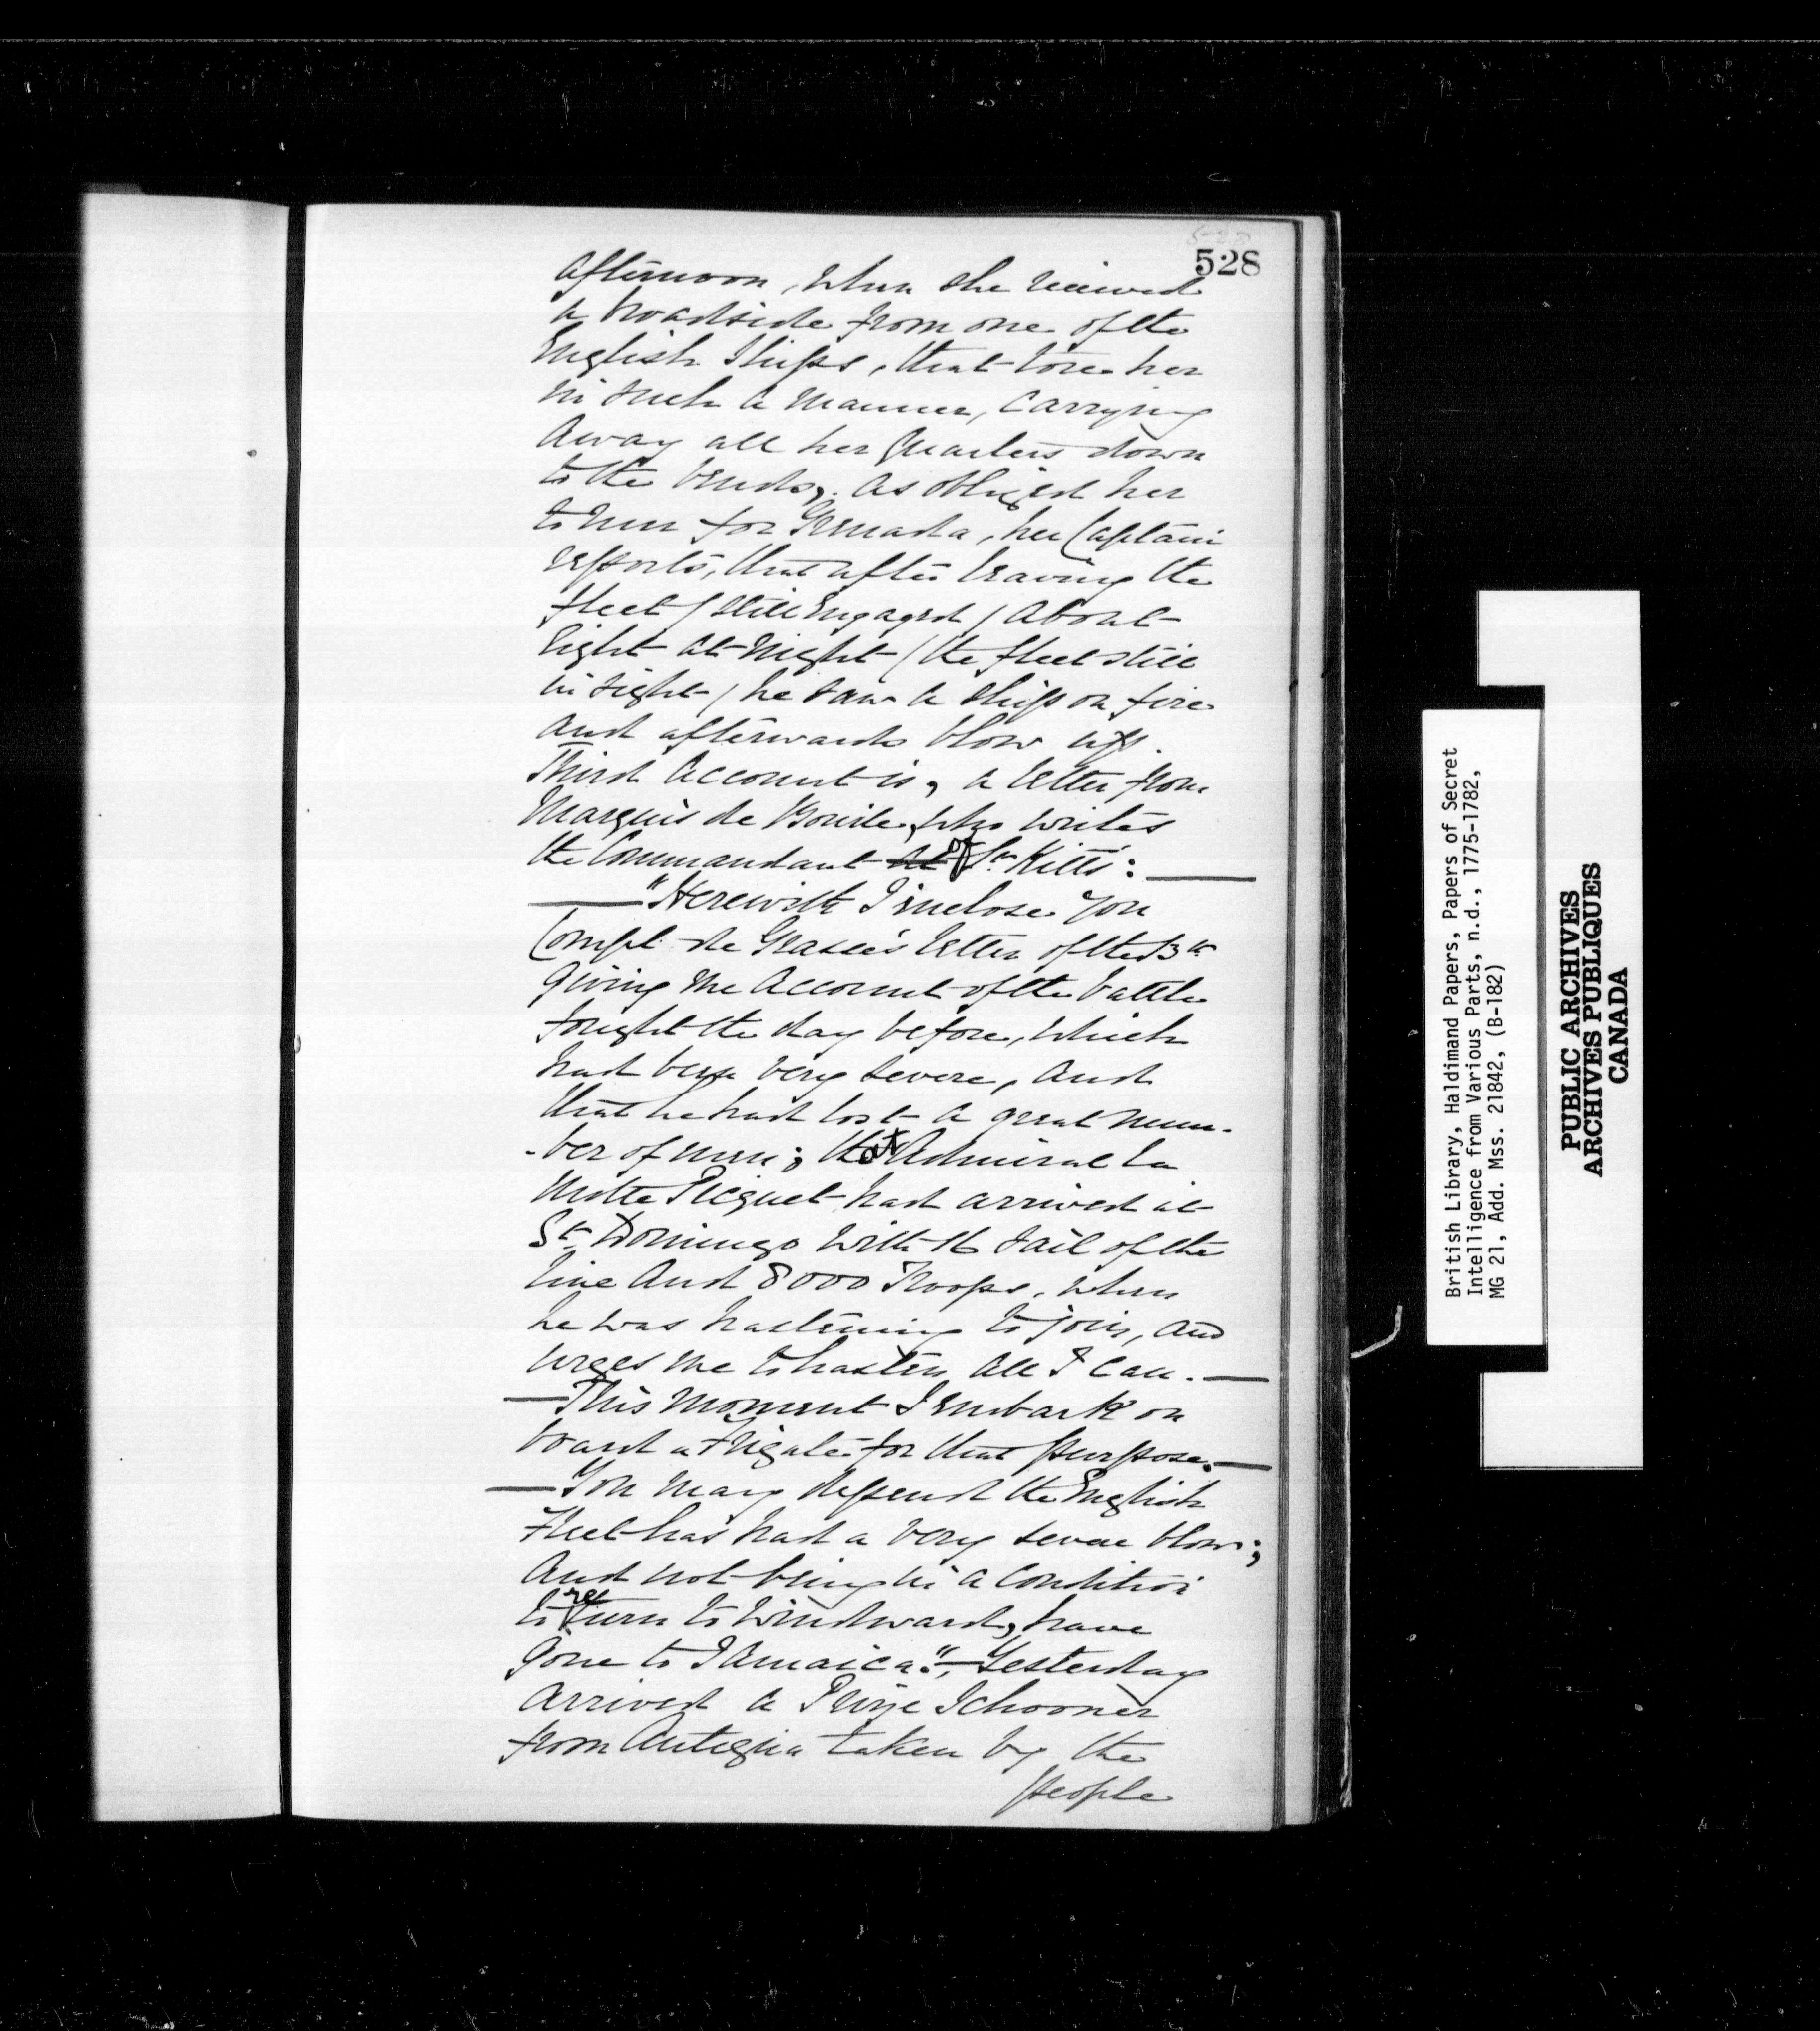 528
afternoon, when she received
a broadside from one of the
English Ships, that tore her
in such a manner, carrying
away all her Quarters down
to the bends, as obliged her
to run for Grenada, her Captain
reports, that after leaving the
fleet (still engaged) about
Eight at Night (the fleet still
in sight) he saw a ship on fire
and afterwards blow up.
Third Account is, a letter from
Marquis de Bouile, who writes
the Commandant at of St. Kitts:
"Herewith I inclose you
Compt. de Grasse's letter of the 13th
giving me Account of the battle
fought the day before, which
had been very severe, and
that he had lost a great num-
-ber of men; that Admiral La
Motte Picquet had arrived at
St. Domingo with 16 Sail of the
line and 8000 Troops, when
he was hastening to join, and
urges me to hasten all I can. —
— This moment I embark on
board a Frigate for that purpose. —
— You may depend the English
Fleet has had a very severe blow;
and not being in a condition
to return to Windward, have
gone to Jamaica." — Yesterday
arrived a Prize Schooner
from Antegua taken by the
people
British Library, Haldimand Papers, Papers of Secret
Intelligence from Various Parts, n.d., 1775-1782,
MG 21, Add. Mss. 21842, (B-182)
PUBLIC ARCHIVES
ARCHIVES PUBLIQUES
CANADA